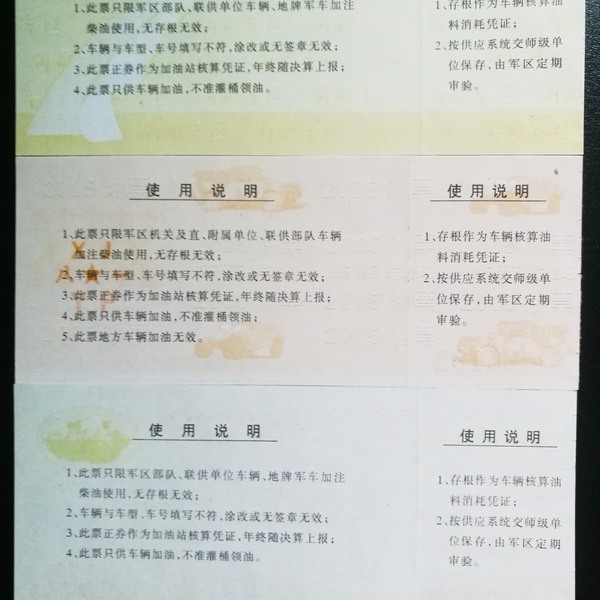 1、此票只限军区部队、联供单位车辆、地牌军车加注
柴油使用,无存根无效;
2、车辆与车型、车号填写不符,涂改或无签章无效;
3、此票正券作为加油站核算凭证,年终随决算上报;
4、此票只供车辆加油,不准灌桶领油。
1、存根作为车辆核算油
料消耗凭证;
2、按供应系统交师级单
位保存,由军区定期
审验。
使用说明
1、此票只限军区机关及直、附属单位、联供部队车辆
加注柴油使用,无存根无效;
2、车辆与车型、车号填写不符,涂改或无签章无效;
3、此票正券作为加油站核算凭证,年终随决算上报;
4、此票只供车辆加油,不准灌桶领油;
5、此票地方车辆加油无效。
使用说明
1、存根作为车辆核算油
料消耗凭证;
2、按供应系统交师级单
位保存,由军区定期
审验。
使用说明
1、此票只限军区部队、联供单位车辆、地牌军车加注
柴油使用,无存根无效;
2、车辆与车型、车号填写不符,涂改或无签章无效;
3、此票正券作为加油站核算凭证,年终随决算上报;
4、此票只供车辆加油,不准灌桶领油。
使用说明
1、存根作为车辆核算油
料消耗凭证;
2、按供应系统交师级单
位保存,由军区定期
审验。